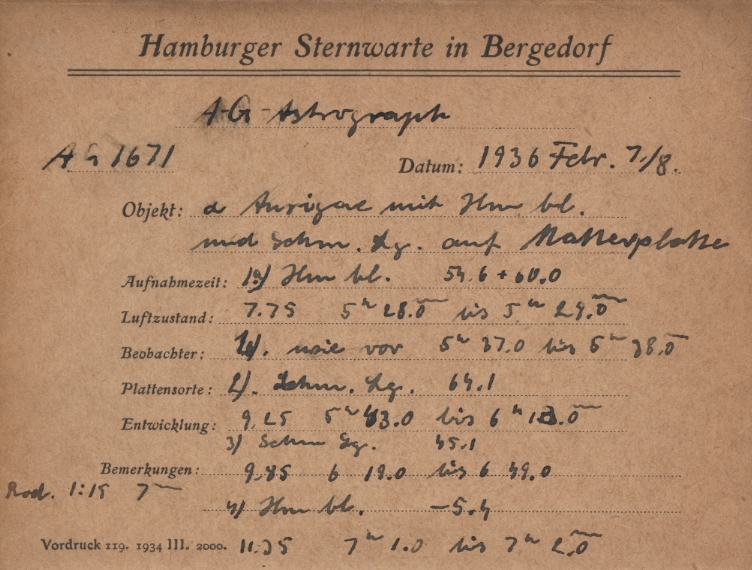 Hamburger Sternwarte in Bergedorf
AG-Astrograph
AG 1671 Datum: 1936 Febr. 7./8.
Objekt: α Aurigae mit Hm bl.
und Schm. Lg. auf
Aufnahmezeit: Hm bl. 54.6 + 60.0
Luftzustand: 7.75 5ʰ 28.0ᵐ bis 5ʰ 29.0ᵐ
Beobachter: wie vor 5ʰ 37.0 bis 5ʰ 38.0ᵐ
Plattensorte: 2). Schm. Lg. 64.1
Entwicklung: 9.25 5ʰ 43.0 bis 6ʰ
3) Schm Lg. 45.1
Bemerkungen: 9.85 6 19.0 bis 6 49.0
Rod. 1:15 7ᵐ
4) Hm bl. -5.4
Vordruck 119. 1934 III. 2000. 11.35 7ʰ 1.0 bis 7ʰ 2.0ᵐ